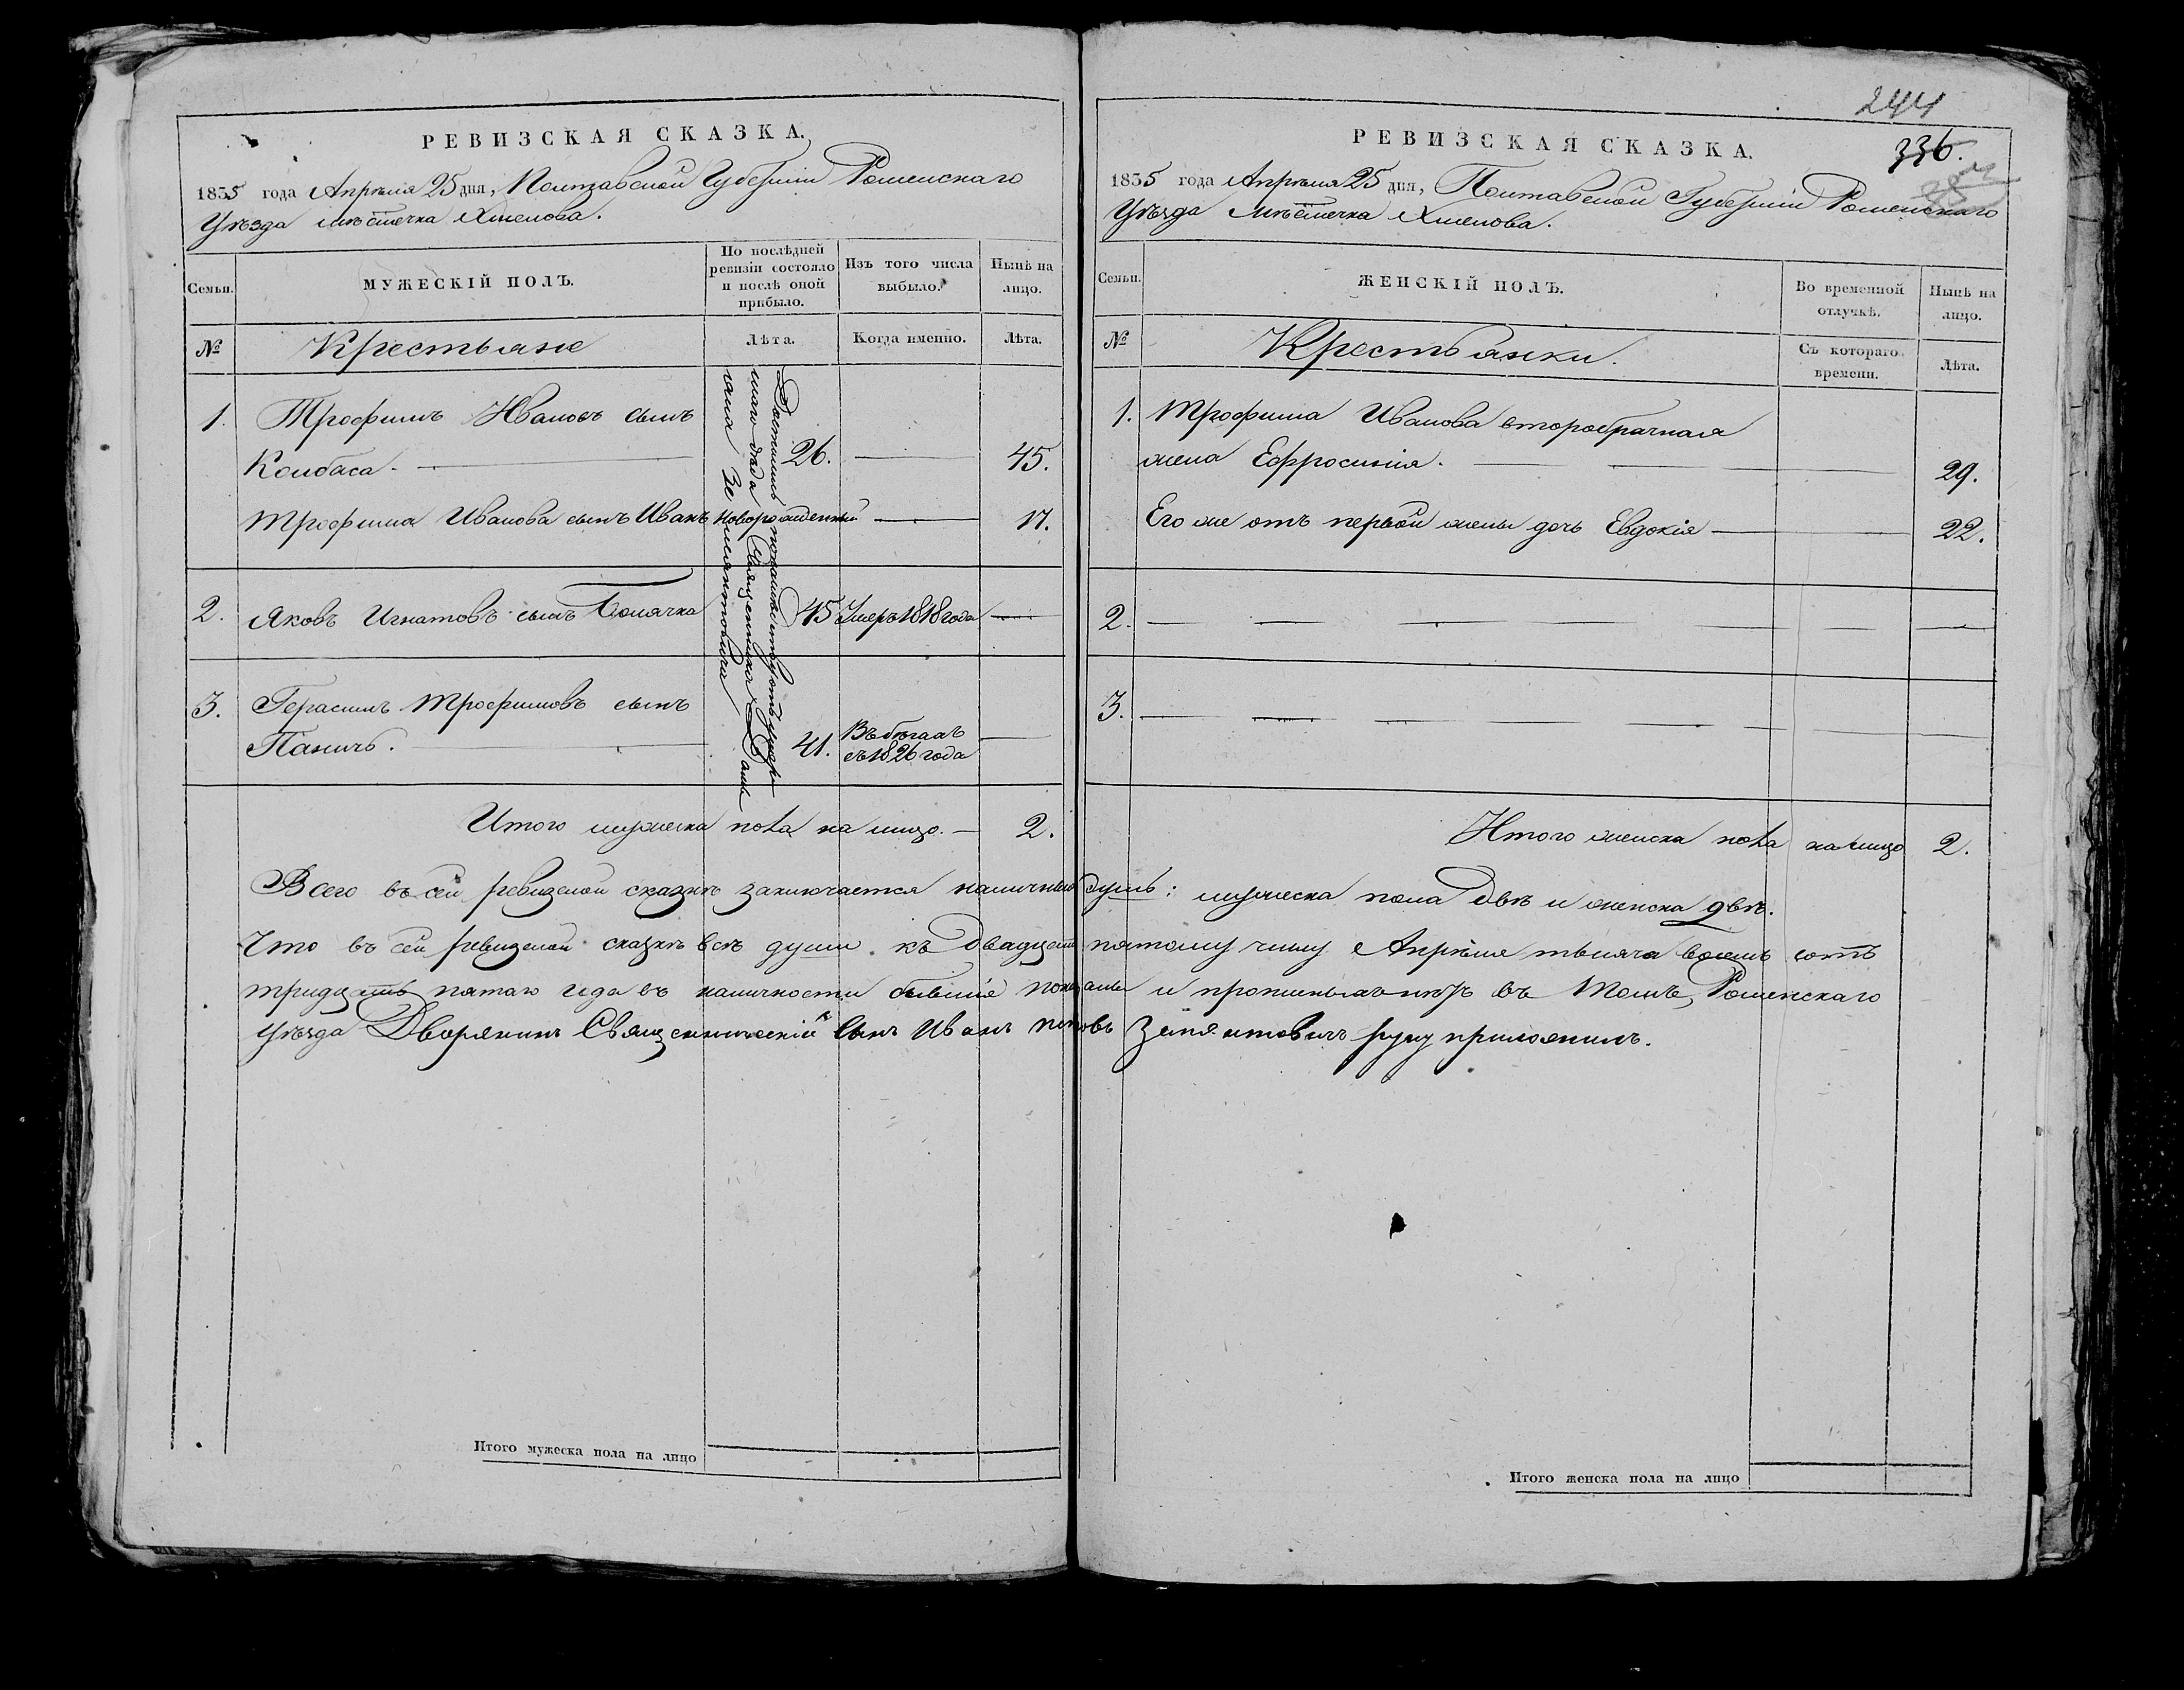 РЕВИЗСКАЯ СКАЗКА.
1835 года Апрѣля 25 дня, Полтавской Губерніи Роменскаго
Уѣзда мѣстечка Хмелова.
Семьи.
МУЖЕСКІЙ ПОЛЪ.
По послѣдней ревизіи состояло и послѣ оной прибыло.
Изъ того числа выбыло.
Нынѣ на лицо.
№
Крестьяне
Лѣта.
Когда именно.
Лѣта.
Достались по наслѣдству отъ умер
шаго дѣда Священника Дами
яна Зе
1. Трофимъ Ивановъ сынъ
Колбаса. 26. 45.
Трофима Иванова сынъ Иванъ новорожденный 17.
2. Яковъ Игнатовъ сынъ 45 Умеръ 1818 года
3. Герасимъ Трофимовъ сынъ
Паничъ. 41. Въ бѣгахъ съ 1826 года
Итого мужеска пола на лицо. 2.
Всего въ сей ревизской сказкѣ заключается наличныхъ
Что въ сей ревизской сказкѣ всѣ души къ двадцать
тридцать пятаго года въ наличности бывшіе показаны
Уѣзда Дворянинъ Священническій сынъ Иванъ
Итого мужеска пола на лицо
244
336.
РЕВИЗСКАЯ СКАЗКА.
1835 года Апрѣля 25 дня, Полтавской Губерніи Роменскаго
Уѣзда мѣстечка Хмелова.
Семьи.
ЖЕНСКІЙ ПОЛЪ.
Во временной отлучкѣ.
Нынѣ на лицо.
№
Крестьянки.
Съ котораго времени.
Лѣта.
1. Трофима Иванова второбрачная
жена Ефросинія. 29.
Его же отъ первой жены дочь Евдокія 22.
2.
3.
Итого женска пола на лицо 2.
душъ: мужеска пола двѣ и женска двѣ.
пятому числу Апрѣля тысяча восемь сотъ
и прописныхъ нѣтъ въ томъ, Роменскаго
руку приложилъ.
Итого женска пола на лицо